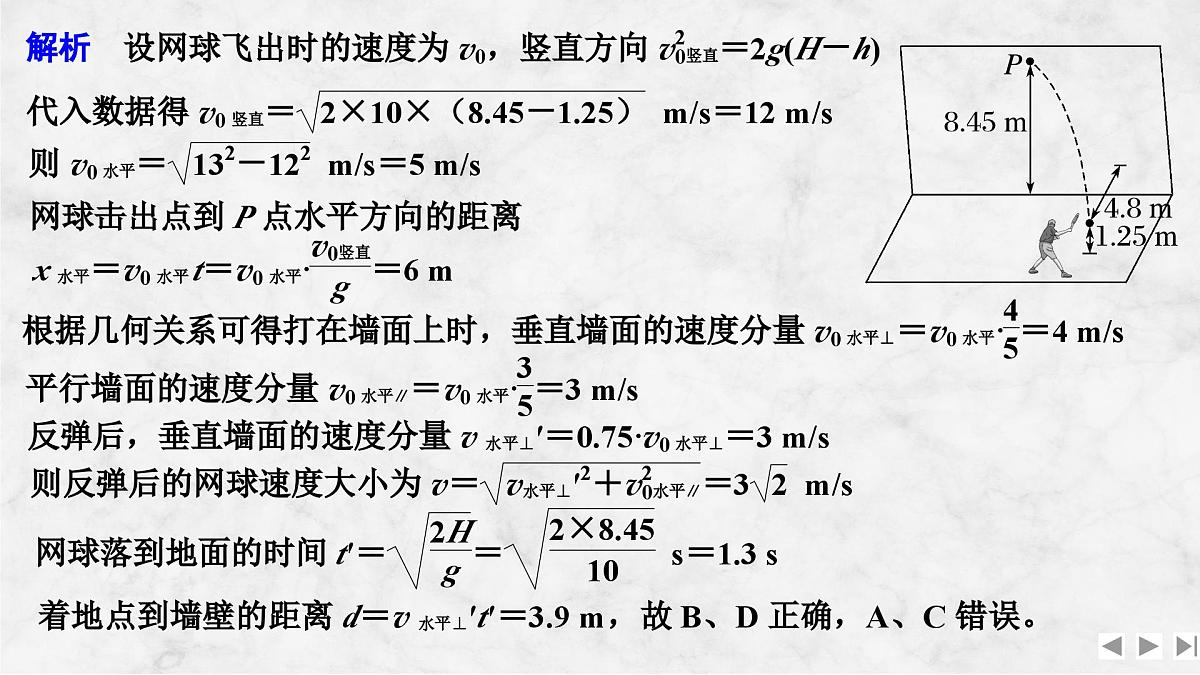 解析 设网球飞出时的速度为 v₀，竖直方向 v₀竖直²＝2g(H－h)
代入数据得 v₀竖直＝√2×10×（8.45－1.25） m/s＝12 m/s
则 v₀水平＝√13²－12² m/s＝5 m/s
网球击出点到 P 点水平方向的距离
x水平＝v₀水平t＝v₀水平·v₀竖直/g＝6 m
根据几何关系可得打在墙面上时，垂直墙面的速度分量 v₀水平⊥＝v₀水平·4/5＝4 m/s
平行墙面的速度分量 v₀水平∥＝v₀水平·3/5＝3 m/s
反弹后，垂直墙面的速度分量 v水平⊥′＝0.75·v₀水平⊥＝3 m/s
则反弹后的网球速度大小为 v＝√v水平⊥′²＋v₀水平∥²＝3√2 m/s
网球落到地面的时间 t′＝√2H/g＝√2×8.45/10 s＝1.3 s
着地点到墙壁的距离 d＝v水平⊥′t′＝3.9 m，故 B、D 正确，A、C 错误。
P
8.45 m
4.8 m
1.25 m